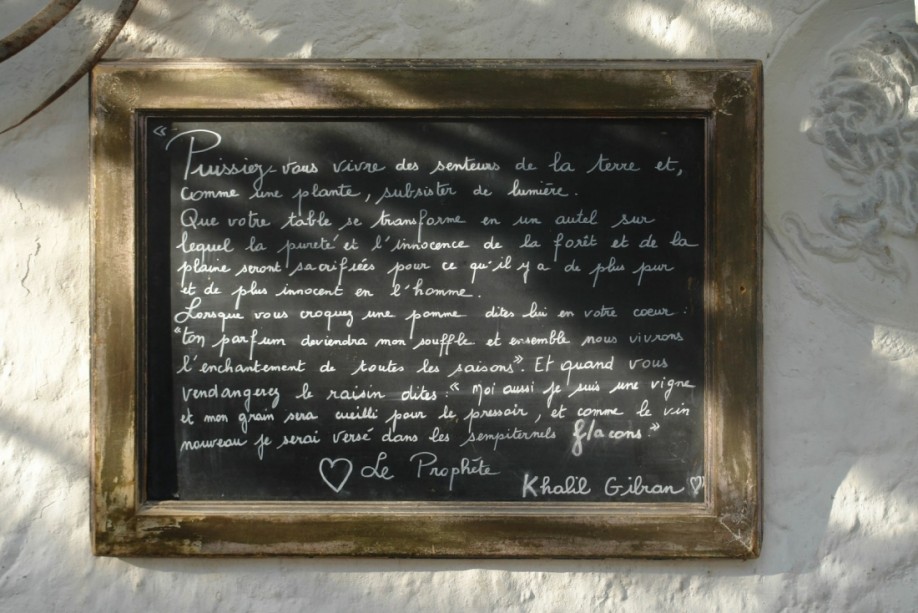 « Puissiez-vous vivre des senteurs de la terre et,
comme une plante, subsister de lumière.
Que votre table se transforme en un autel sur
lequel la pureté et l'innocence de la forêt et de la
plaine seront sacrifiées pour ce qu'il y a de plus pur
et de plus innocent en l'homme.
Lorsque vous croquez une pomme dites lui en votre coeur :
"ton parfum deviendra mon souffle et ensemble nous vivrons
l'enchantement de toutes les saisons". Et quand vous
vendangerez le raisin dites : "Moi aussi je suis une vigne
et mon grain sera cueilli pour le pressoir, et comme le vin
nouveau je serai versé dans les sempiternels flacons."
♡ Le Prophète
Khalil Gibran ♡